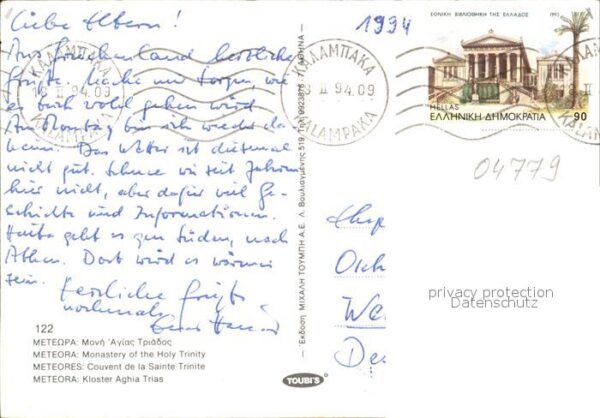 Liebe Eltern!
Aus Griechenland herzliche
Grüße. Mache mir Sorgen, wie
es euch wohl gehen wird
Am Montag bin ich wieder da-
heim. Das Wetter ist diesmal
nicht gut. Schnee wie seit Jahren
hier nicht, aber dafür viel Ge-
schichte und Informationen.
Heute geht es gen Süden, nach
Athen. Dort wird es wärmer
sein.
Herzliche Grüße
nochmals
122
ΜΕΤΕΩΡΑ: Μονή Ἁγίας Τριάδος
METEORA: Monastery of the Holy Trinity
METEORES: Couvent de la Sainte Trinite
METEORA: Kloster Aghia Trias
Ἔκδοση ΜΙΧΑΛΗ ΤΟΥΜΠΗ Α.Ε. Λ. Βουλιαγμένης 519, Τηλ. 9923876 ΑΘΗΝΑ
TOUBI'S
1994
ΚΑΛΑΜΠΑΚΑ
18 II 94.09
KALAMPAKA
ΚΑΛΑΜΠΑΚΑ
18 II 94.09
KALAMPAKA
ΕΘΝΙΚΗ ΒΙΒΛΙΟΘΗΚΗ ΤΗΣ ΕΛΛΑΔΟΣ
1993
HELLAS
ΕΛΛΗΝΙΚΗ ΔΗΜΟΚΡΑΤΙΑ 90
04779
privacy protection
Datenschutz